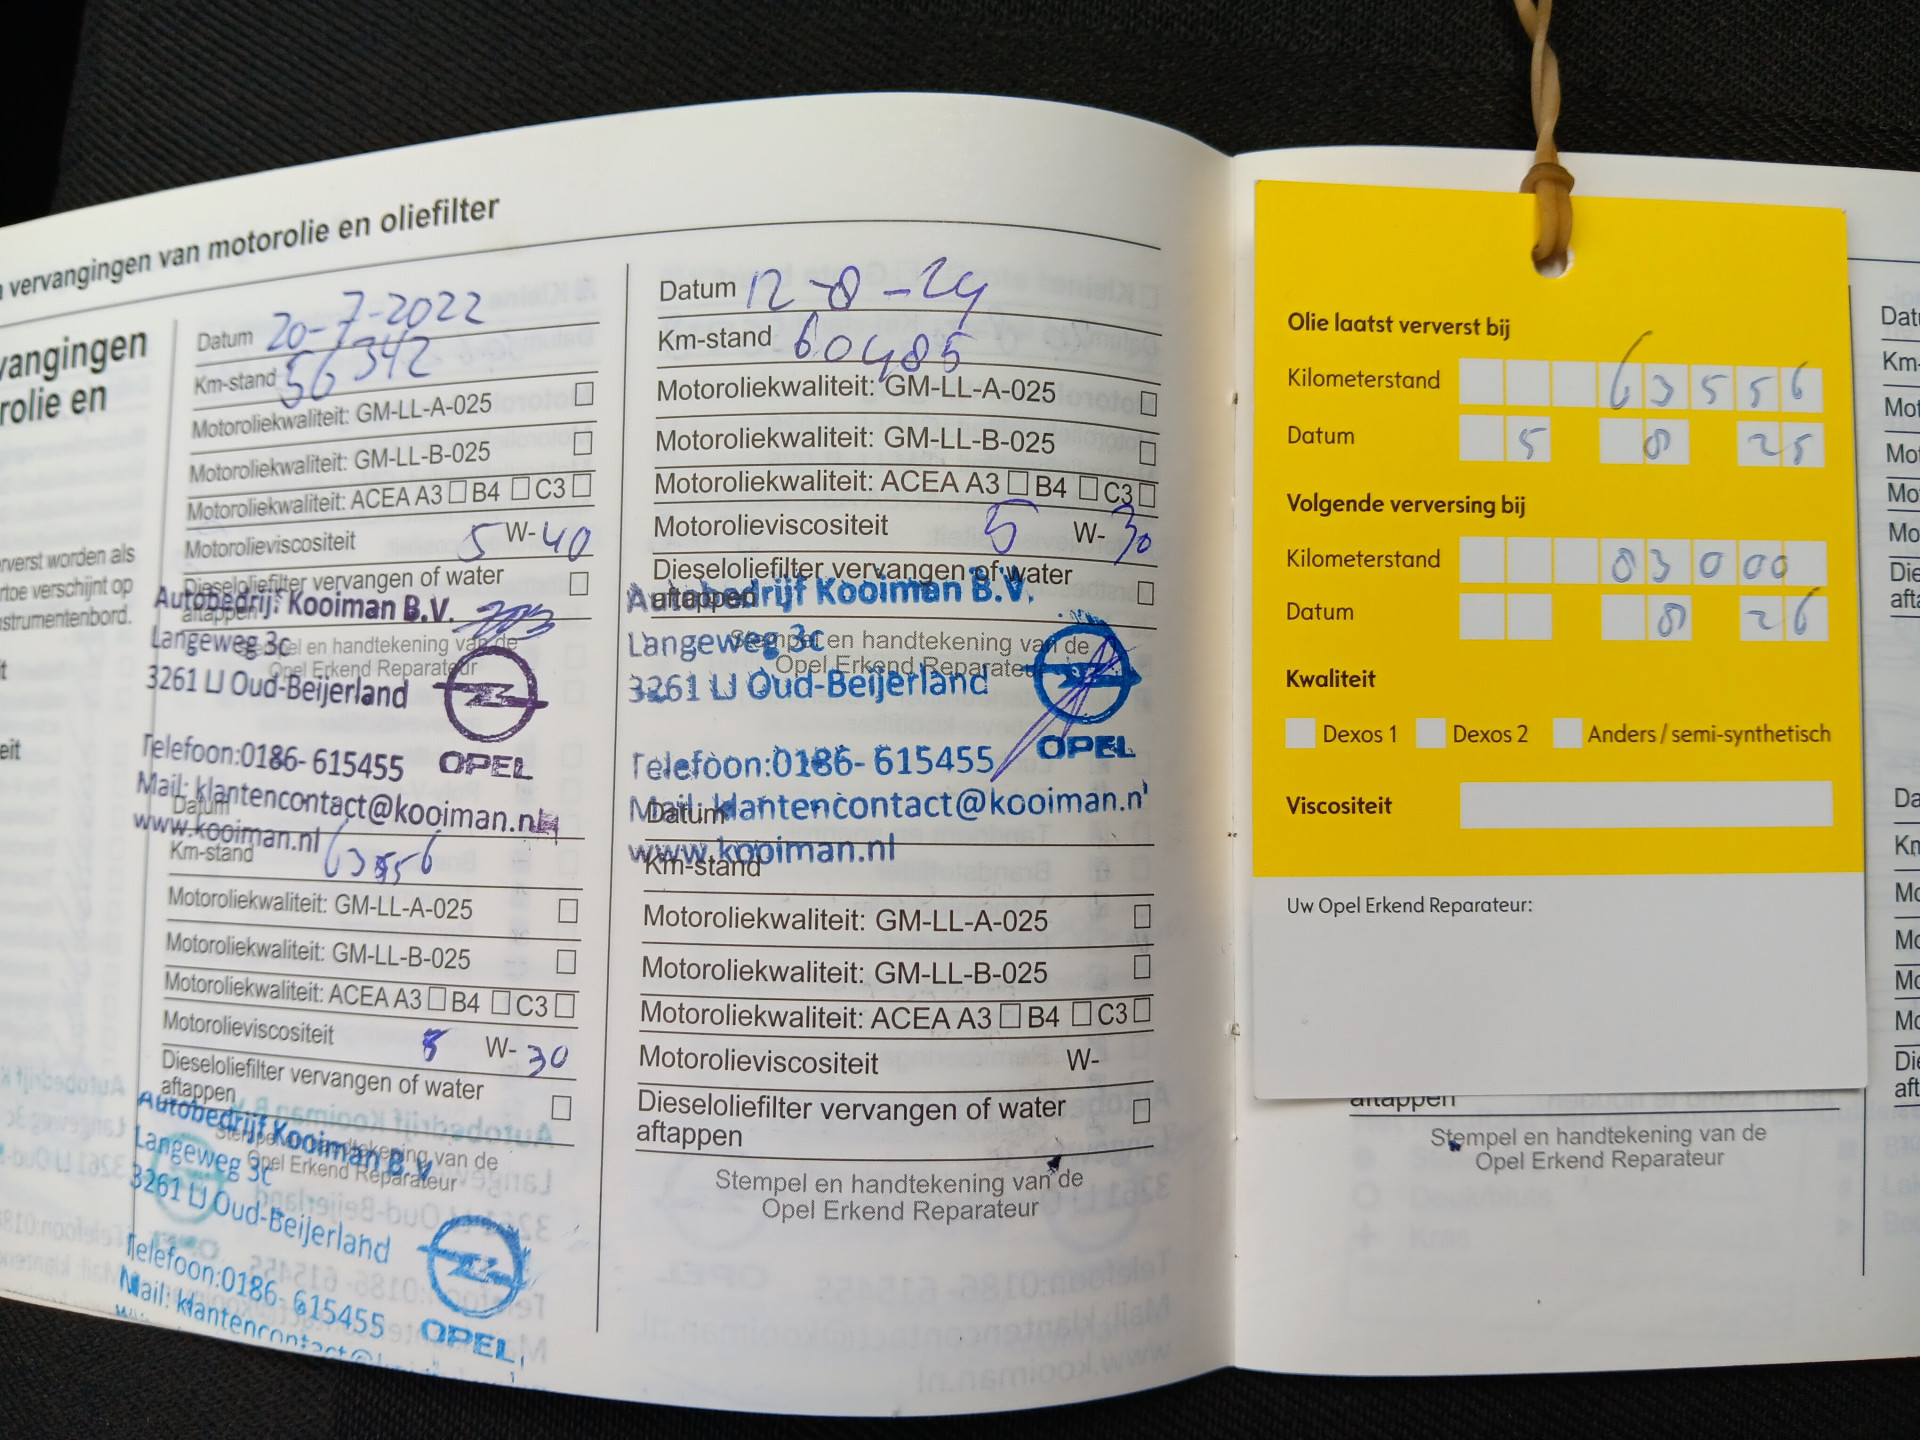 vervangingen van motorolie en oliefilter
vangingen
rolie en
rverst worden als
rtoe verschijnt op
strumentenbord.
eit
Datum 20-7-2022
Km-stand 56342
Motoroliekwaliteit: GM-LL-A-025
Motoroliekwaliteit: GM-LL-B-025
Motoroliekwaliteit: ACEA A3 B4 C3
Motorolieviscositeit 5 W-40
Dieseloliefilter vervangen of water
aftappen
Autobedrijf Kooiman B.V.
Langeweg 3c
Stempel en handtekening van de
Opel Erkend Reparateur
3261 LJ Oud-Beijerland
Telefoon:0186- 615455
OPEL
Mail: klantencontact@kooiman.nl
www.kooiman.nl
Datum
Km-stand 63556
Motoroliekwaliteit: GM-LL-A-025
Motoroliekwaliteit: GM-LL-B-025
Motoroliekwaliteit: ACEA A3 B4 C3
Motorolieviscositeit 5 W-30
Dieseloliefilter vervangen of water
aftappen
Autobedrijf Kooiman B.V.
Langeweg 3c
Stempel en handtekening van de
Opel Erkend Reparateur
3261 LJ Oud-Beijerland
Telefoon:0186- 615455
OPEL
Mail: klantencontact@
Datum 12-8-24
Km-stand 60485
Motoroliekwaliteit: GM-LL-A-025
Motoroliekwaliteit: GM-LL-B-025
Motoroliekwaliteit: ACEA A3 B4 C3
Motorolieviscositeit 5 W-30
Dieseloliefilter vervangen of water
aftappen
Autobedrijf Kooiman B.V.
Langeweg 3c
Stempel en handtekening van de
Opel Erkend Reparateur
3261 LJ Oud-Beijerland
OPEL
Telefoon:0186- 615455
Mail: klantencontact@kooiman.n
Datum
www.kooiman.nl
Km-stand
Motoroliekwaliteit: GM-LL-A-025
Motoroliekwaliteit: GM-LL-B-025
Motoroliekwaliteit: ACEA A3 B4 C3
Motorolieviscositeit W-
Dieseloliefilter vervangen of water
aftappen
Stempel en handtekening van de
Opel Erkend Reparateur
Olie laatst ververst bij
Kilometerstand 63556
Datum 5 8 25
Volgende verversing bij
Kilometerstand 83000
Datum 8 26
Kwaliteit
Dexos 1 Dexos 2 Anders / semi-synthetisch
Viscositeit
Uw Opel Erkend Reparateur:
aftappen
Stempel en handtekening van de
Opel Erkend Reparateur
Datu
Km-
Mot
Mot
Mo
Mo
Die
afta
Da
Kn
Mc
Mc
Mc
Mc
Die
aft